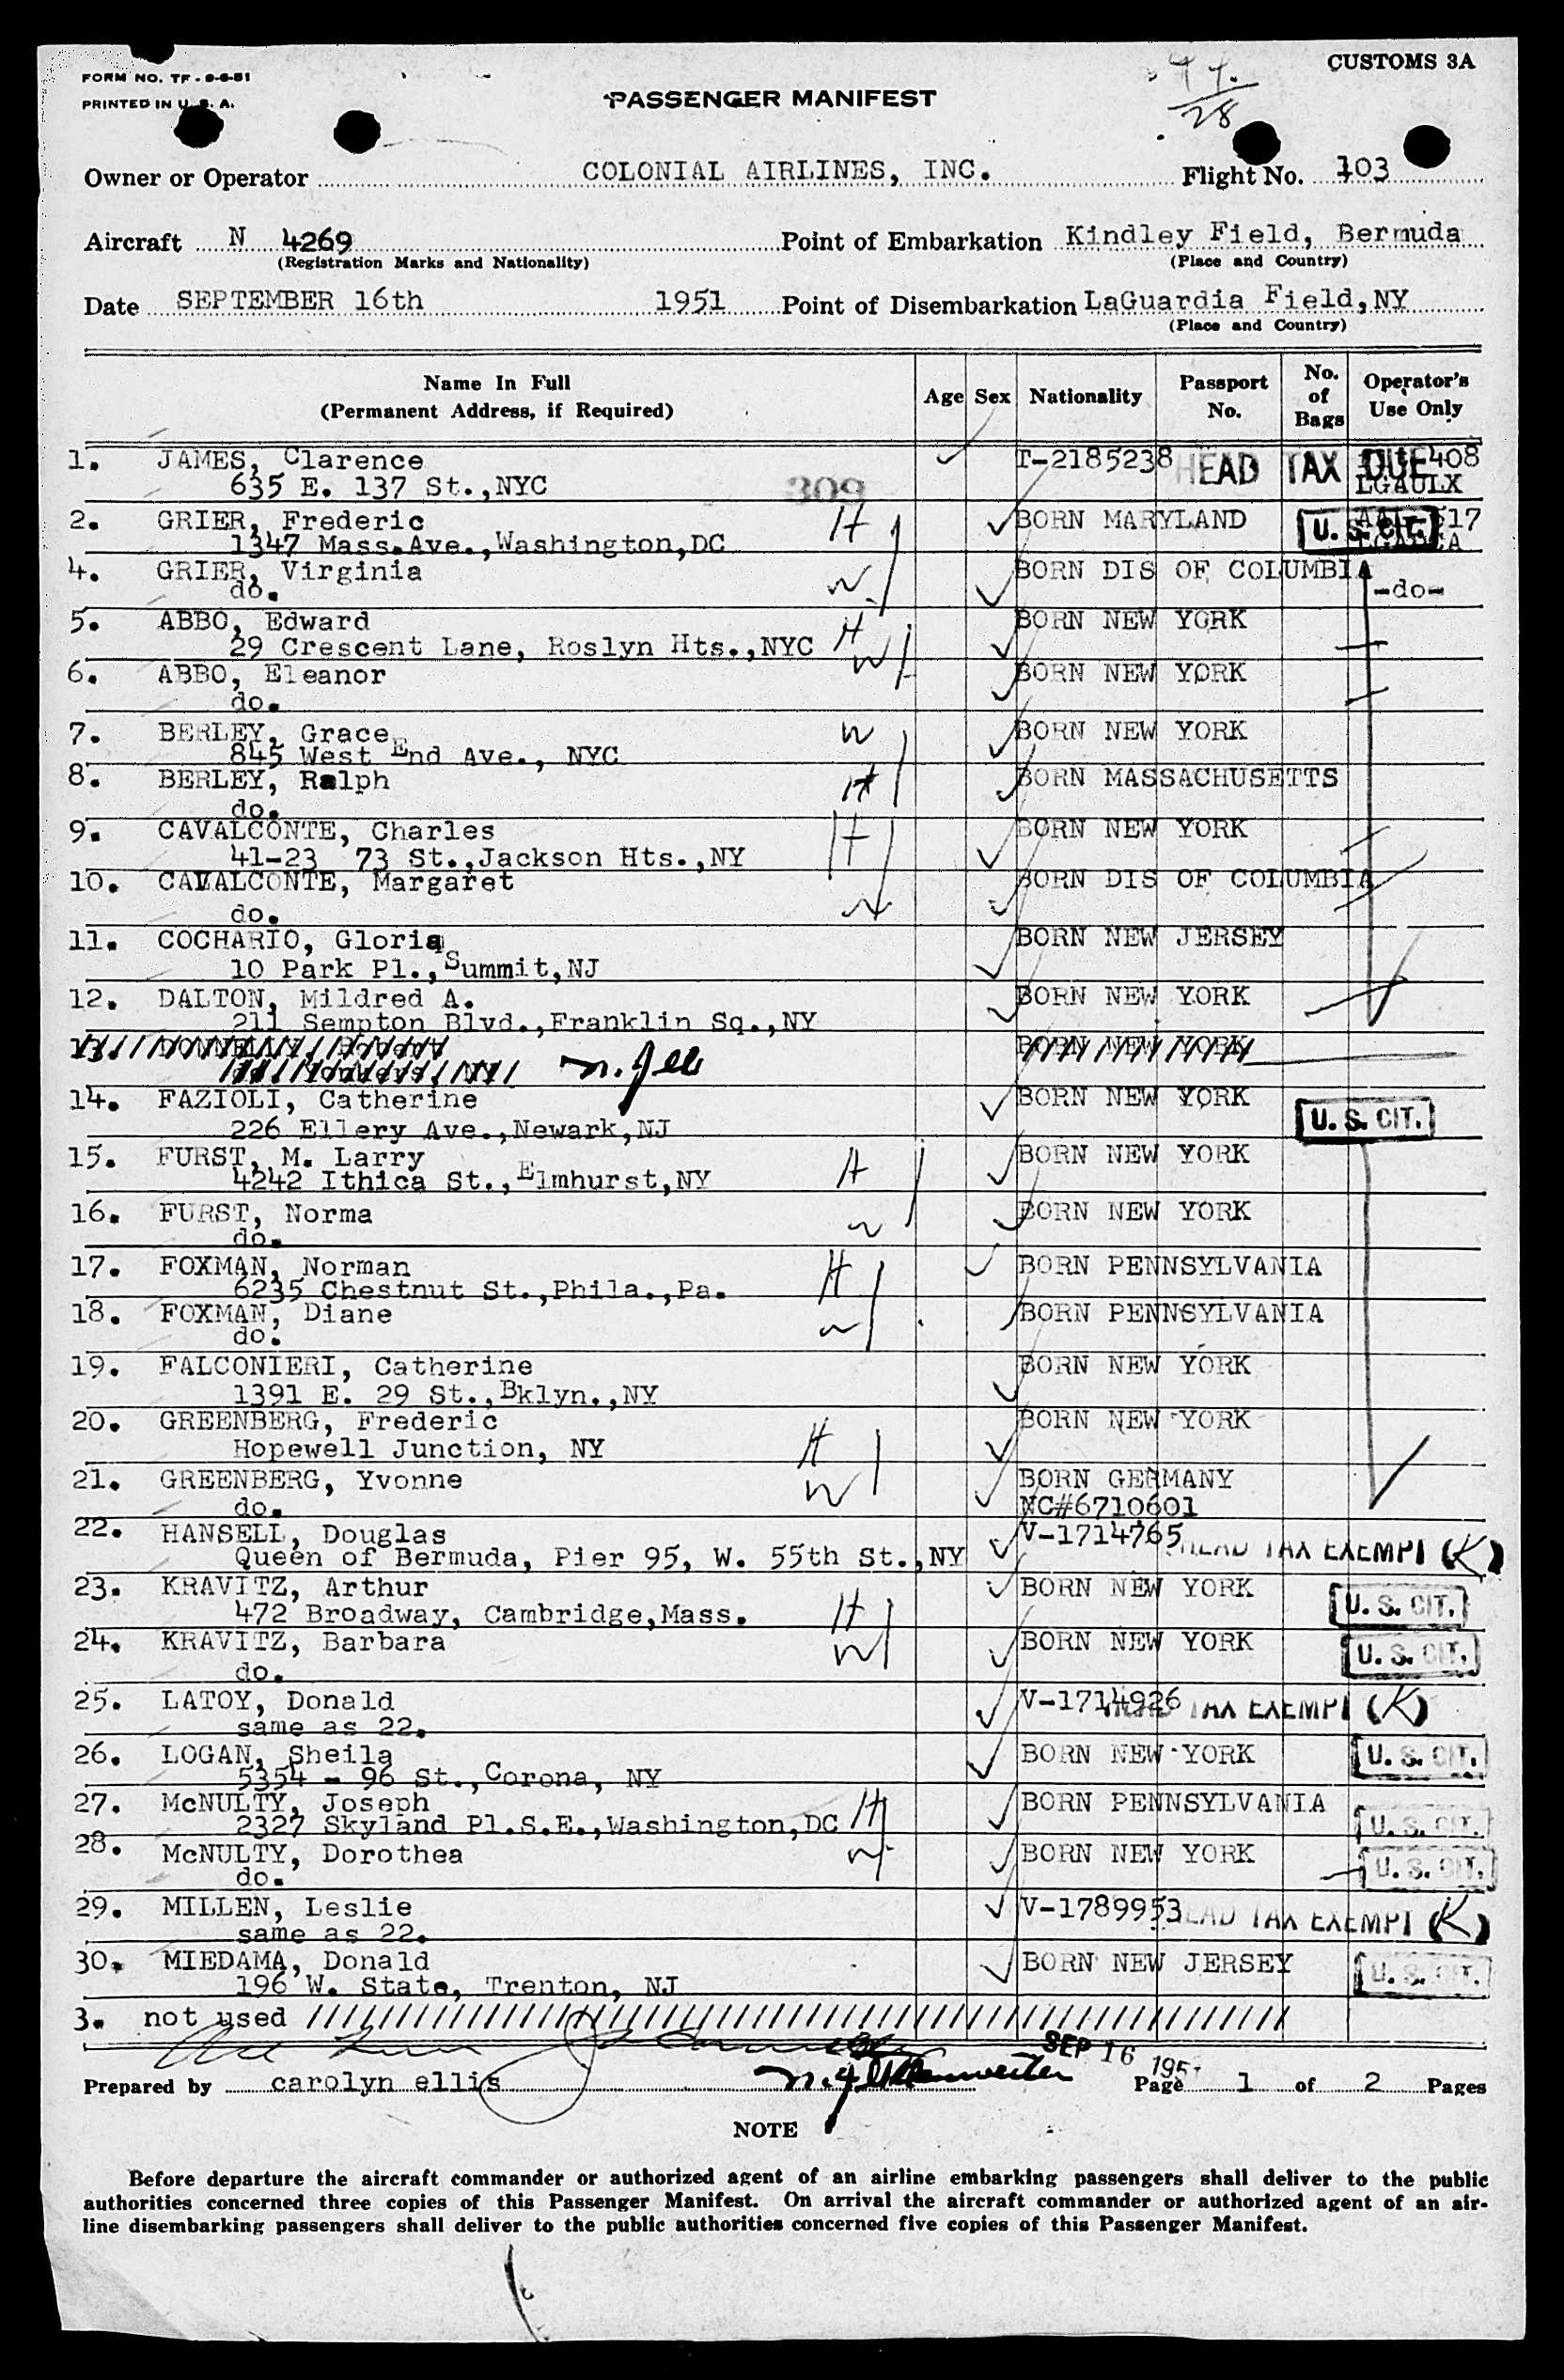 FORM NO. TF - 9-6-51
CUSTOMS 3A
PRINTED IN U. S. A.
PASSENGER MANIFEST
28
Owner or Operator COLONIAL AIRLINES, INC. Flight No. 103
Aircraft N 4269 Point of Embarkation Kindley Field, Bermuda
(Registration Marks and Nationality) (Place and Country)
Date SEPTEMBER 16th 1951 Point of Disembarkation LaGuardia Field,NY
(Place and Country)
Name In Full (Permanent Address, if Required) Age Sex Nationality Passport No. No. of Bags Operator's Use Only
1. JAMES, Clarence T-2185238 HEAD TAX DUE 408
635 E. 137 St.,NYC 309 LGAULX
2. GRIER, Frederic H BORN MARYLAND U. S. CIT. 517
1347 Mass.Ave.,Washington,DC
4. GRIER, Virginia W BORN DIS OF COLUMBIA
do. -do-
5. ABBO, Edward H BORN NEW YORK
29 Crescent Lane, Roslyn Hts.,NYC
6. ABBO, Eleanor W BORN NEW YORK
do.
7. BERLEY, Grace W BORN NEW YORK
845 West End Ave., NYC
8. BERLEY, Ralph H BORN MASSACHUSETTS
do.
9. CAVALCONTE, Charles H BORN NEW YORK
41-23 73 St.,Jackson Hts.,NY
10. CAVALCONTE, Margaret W BORN DIS OF COLUMBIA
do.
11. COCHARIO, Gloria BORN NEW JERSEY
10 Park Pl.,Summit,NJ
12. DALTON, Mildred A. BORN NEW YORK
211 Sempton Blvd.,Franklin Sq.,NY
13. BORN NEW YORK
14. FAZIOLI, Catherine BORN NEW YORK U. S. CIT.
226 Ellery Ave.,Newark,NJ
15. FURST, M. Larry H BORN NEW YORK
4242 Ithica St.,Elmhurst,NY
16. FURST, Norma W BORN NEW YORK
do.
17. FOXMAN, Norman H BORN PENNSYLVANIA
6235 Chestnut St.,Phila.,Pa.
18. FOXMAN, Diane W BORN PENNSYLVANIA
do.
19. FALCONIERI, Catherine BORN NEW YORK
1391 E. 29 St.,Bklyn.,NY
20. GREENBERG, Frederic H BORN NEW YORK
Hopewell Junction, NY
21. GREENBERG, Yvonne W BORN GERMANY
do. NC#6710601
22. HANSELL, Douglas V-1714765 HEAD TAX EXEMPT (K)
Queen of Bermuda, Pier 95, W. 55th St.,NY
23. KRAVITZ, Arthur H BORN NEW YORK U. S. CIT.
472 Broadway, Cambridge,Mass.
24. KRAVITZ, Barbara W BORN NEW YORK U. S. CIT.
do.
25. LATOY, Donald V-1714926 HEAD TAX EXEMPT (K)
same as 22.
26. LOGAN, Sheila BORN NEW YORK U. S. CIT.
5354 - 96 St.,Corona, NY
27. McNULTY, Joseph H BORN PENNSYLVANIA U. S. CIT.
2327 Skyland Pl.S.E.,Washington,DC
28. McNULTY, Dorothea W BORN NEW YORK U. S. CIT.
do.
29. MILLEN, Leslie V-1789953 HEAD TAX EXEMPT (K)
same as 22.
30. MIEDAMA, Donald BORN NEW JERSEY U. S. CIT.
196 W. State, Trenton, NJ
3. not used
SEP 16 195
Prepared by carolyn ellis Page 1 of 2 Pages
NOTE
Before departure the aircraft commander or authorized agent of an airline embarking passengers shall deliver to the public
authorities concerned three copies of this Passenger Manifest. On arrival the aircraft commander or authorized agent of an air-
line disembarking passengers shall deliver to the public authorities concerned five copies of this Passenger Manifest.